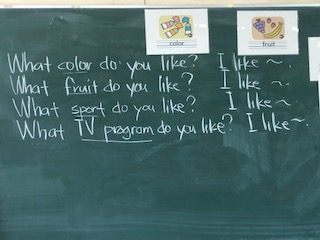 color fruit
What color do you like? I like ~.
What fruit do you like? I like ~.
What sport do you like? I like ~.
What TV program do you like? I like ~.